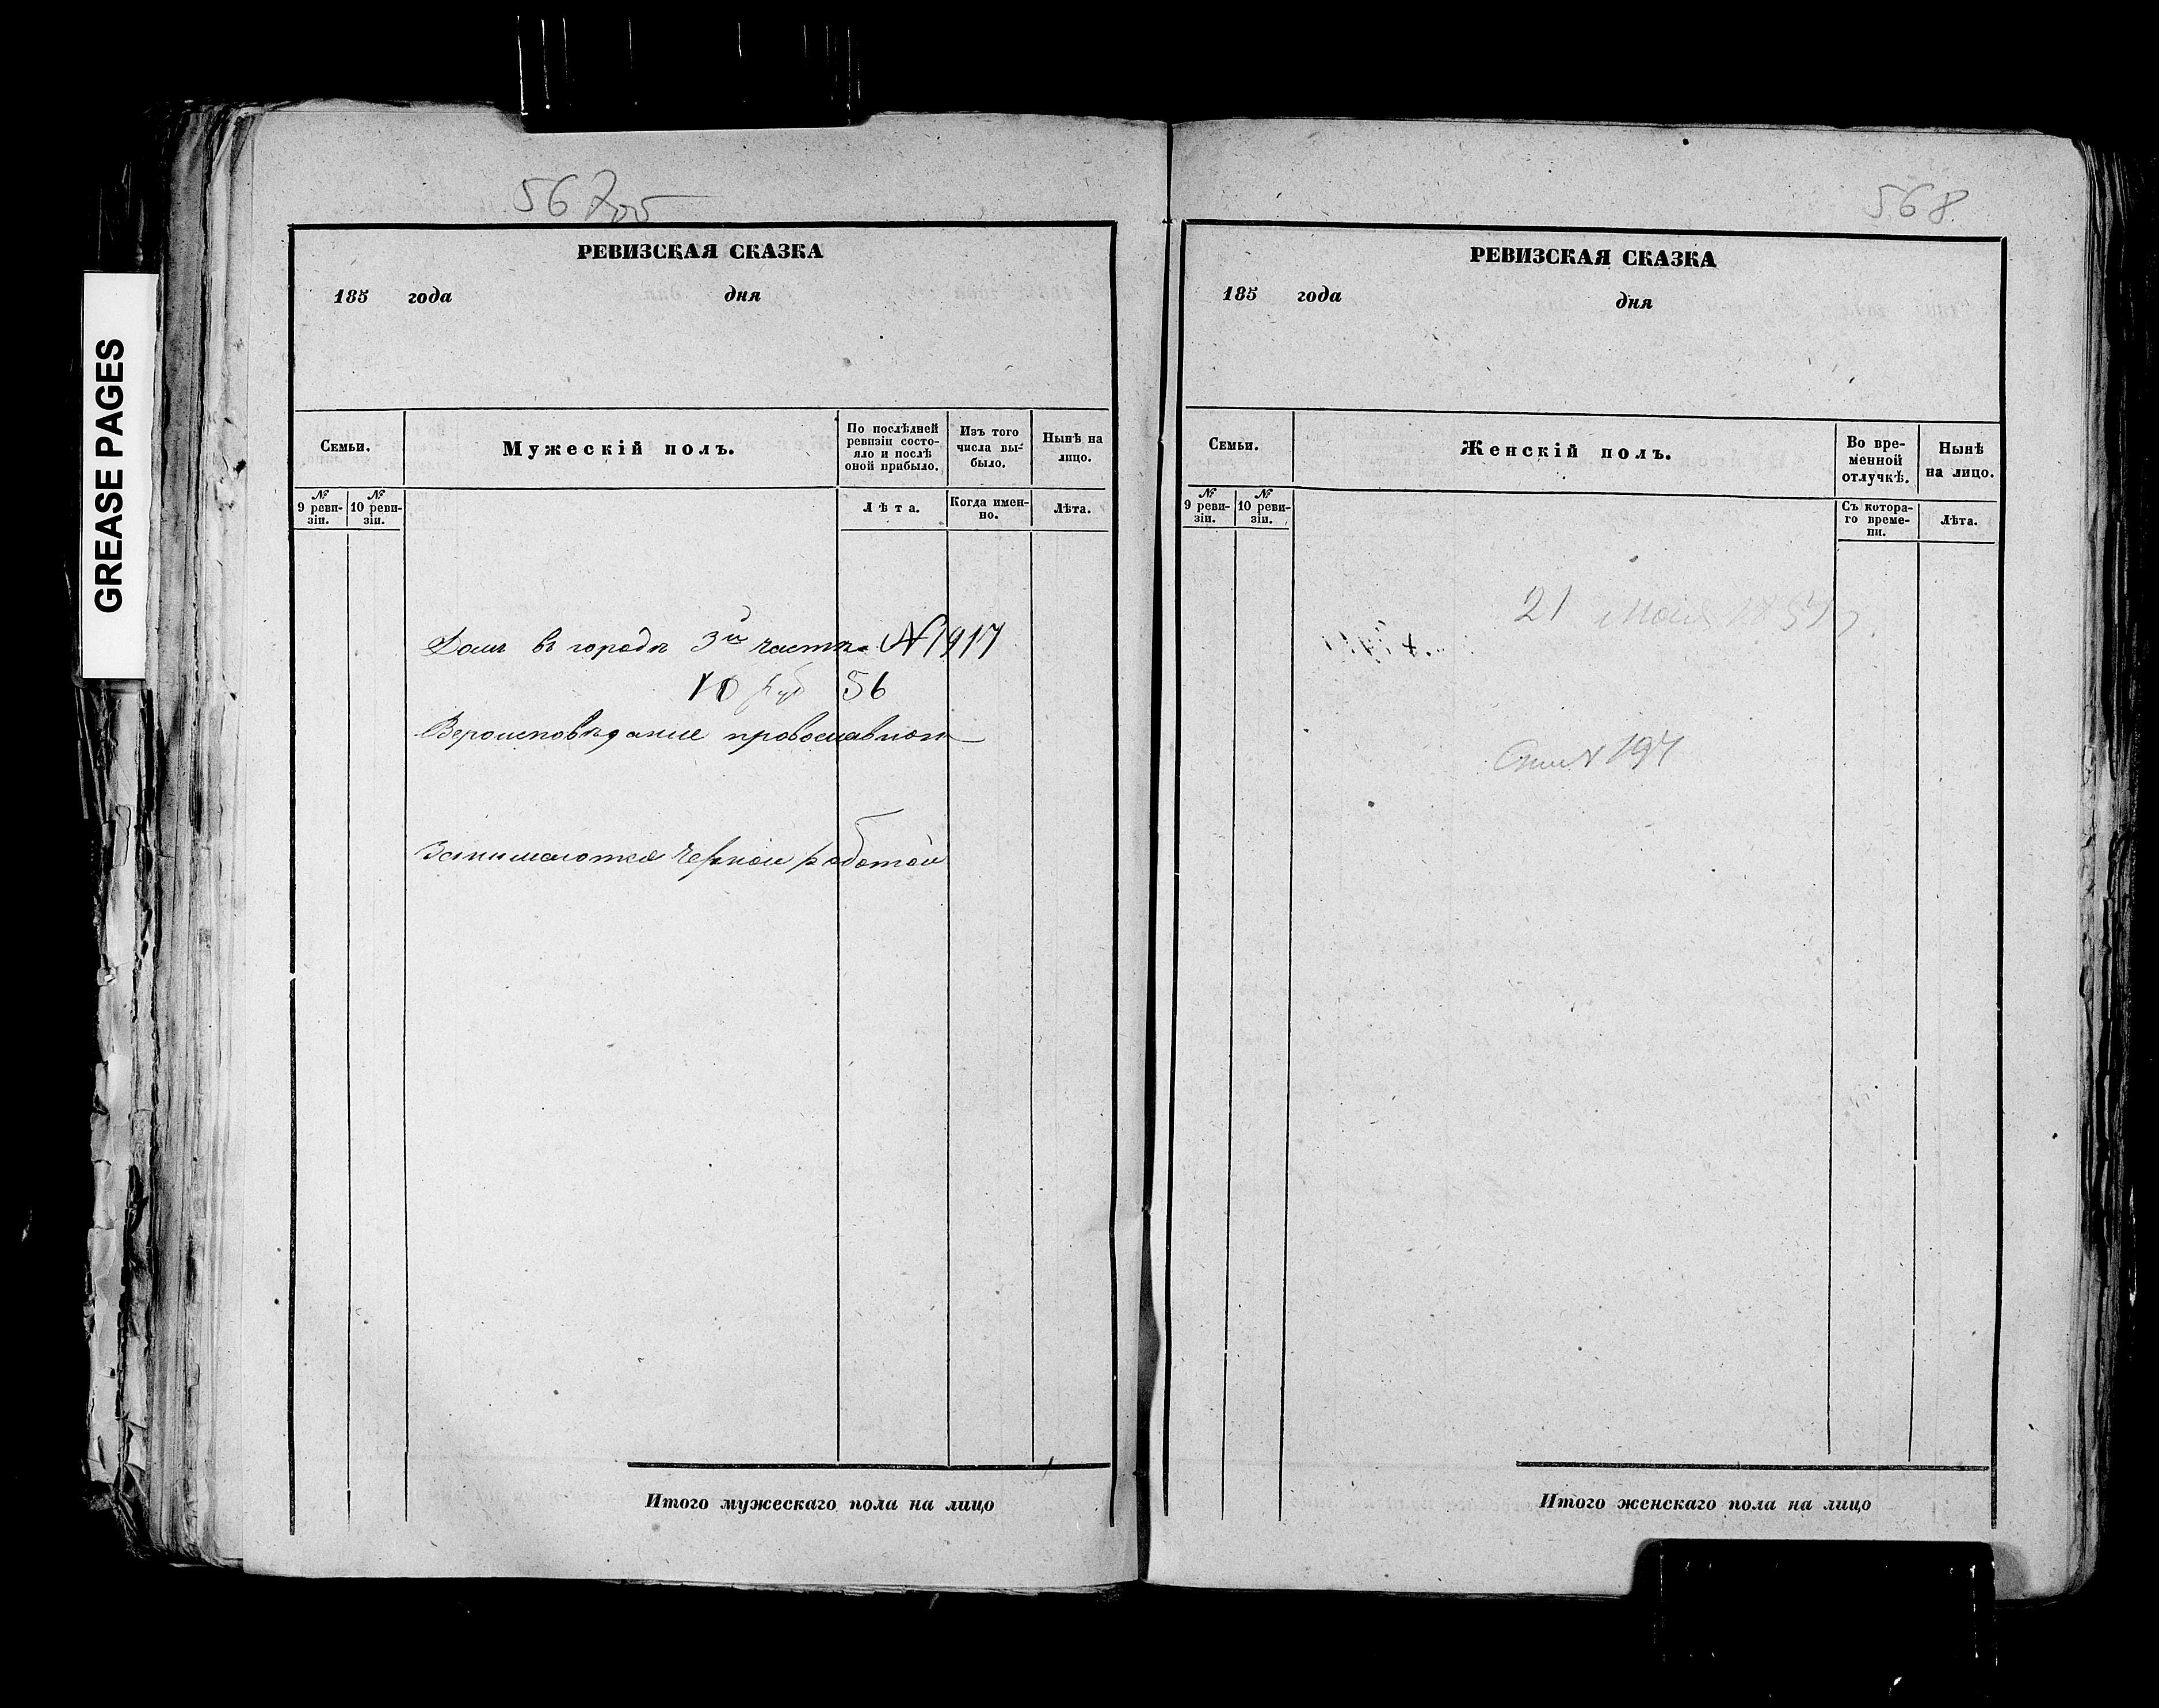 GREASE PAGES
567об
РЕВИЗСКАЯ СКАЗКА
185 года дня
Семьи.
Мужескій полъ.
По послѣдней ревизіи состояло и послѣ оной прибыло.
Изъ того числа выбыло.
Нынѣ на лицо.
№ 9 ревизіи.
№ 10 ревизіи.
Лѣта.
Когда именно.
Лѣта.
Домъ въ городѣ 3й части № 1917
10 руб 56
Вероисповѣдание провославнои
Занимаютса черной работой
Итого мужескаго пола на лицо
568
РЕВИЗСКАЯ СКАЗКА
185 года дня
Семьи.
Женскій полъ.
Во временной отлучкѣ.
Нынѣ на лицо.
№ 9 ревизіи.
№ 10 ревизіи.
Съ котораго времени.
Лѣта.
21 Мая
197
Итого женскаго пола на лицо